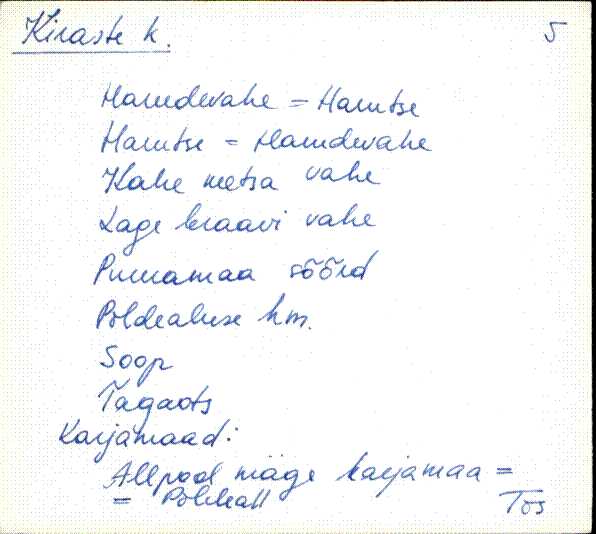 Kiraste k. 5
Harudevahe = Harutse
Harutse = Harudevahe
Kahe metsa vahe
Lage kraavi vahe
Punamaa sõõrd
Põldealuse hm.
Soop
Tagaots
Karjamaad:
Allpool mäge karjamaa =
= Põldeall Tõs